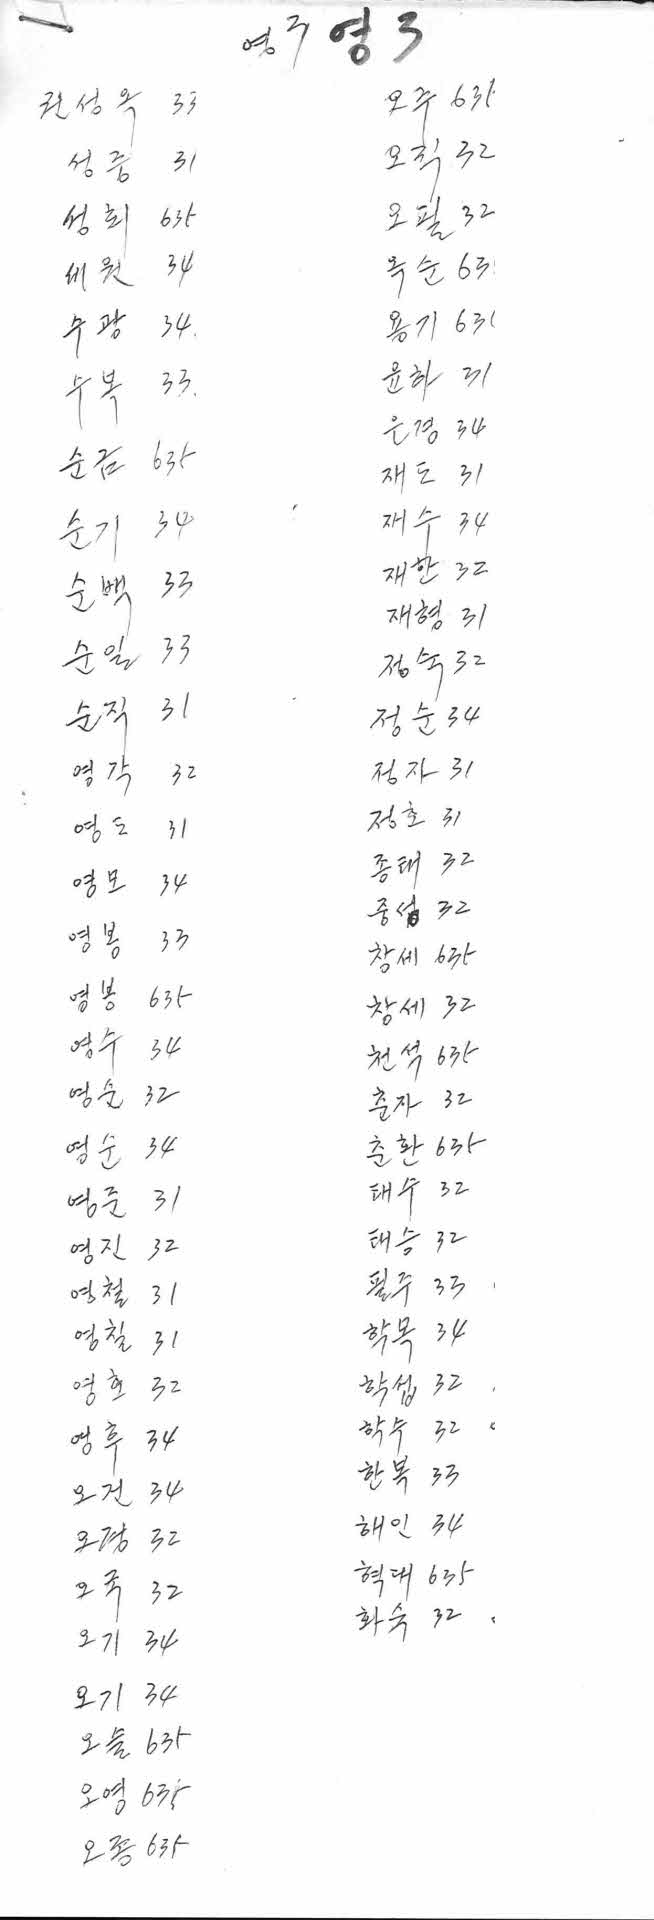 영주 영 3
권성옥 33
성중 31
성희 635
세원 34
수광 34
수복 33
순금 635
순기 34
순백 33
순일 33
순직 31
영각 32
영도 31
영모 34
영봉 33
영봉 635
영수 34
영순 32
영순 34
영준 31
영진 32
영철 31
영칠 31
영호 32
영후 34
오건 34
오경 32
오국 32
오기 34
오기 34
오을 635
오영 635
오종 635
오주 635
오직 32
오필 32
옥순 63
용기 631
윤하 31
은경 34
재도 31
재수 34
재한 32
재형 31
정숙 32
정순 34
정자 31
정호 31
종태 32
중섭 32
창세 635
창세 32
천석 635
춘자 32
춘환 635
태수 32
태승 32
필주 33
학목 34
학섭 32
학수 32
한복 33
해인 34
혁대 635
화숙 32